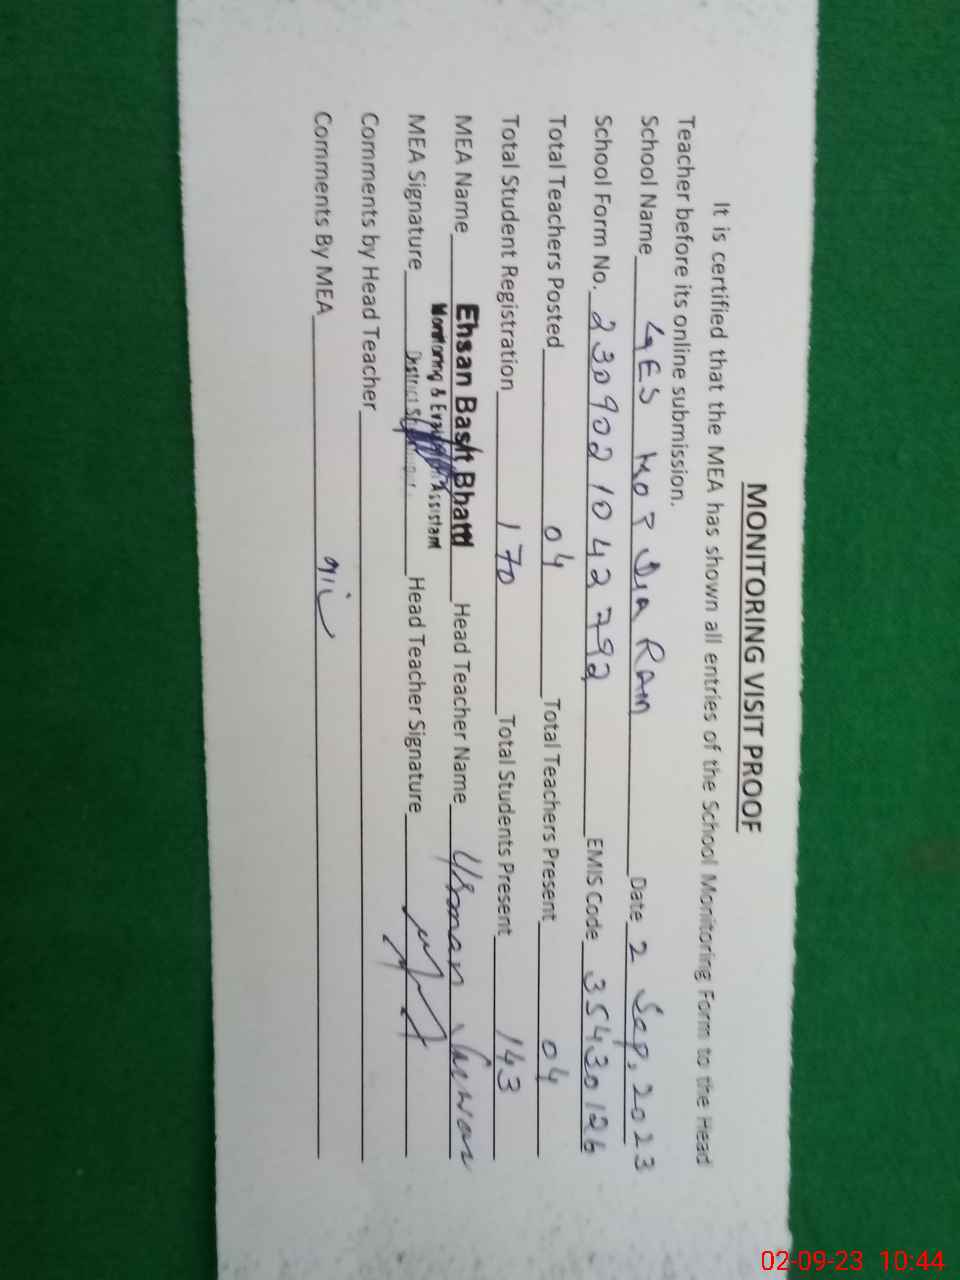 MONITORING VISIT PROOF
It is certified that the MEA has shown all entries of the School Monitoring Form to the Head
Teacher before its online submission.
School Name GES Dia Ram Date 2 Sep, 2023
School Form No. 2309021042792 EMIS Code 35430126
Total Teachers Posted 04 Total Teachers Present 04
Total Student Registration 170 Total Students Present 143
MEA Name Ehsan Basit Bhatti Head Teacher Name Usman
Monitoring & Evaluation Assistant
District
MEA Signature Head Teacher Signature
Comments by Head Teacher
Comments By MEA
02-09-23 10:44